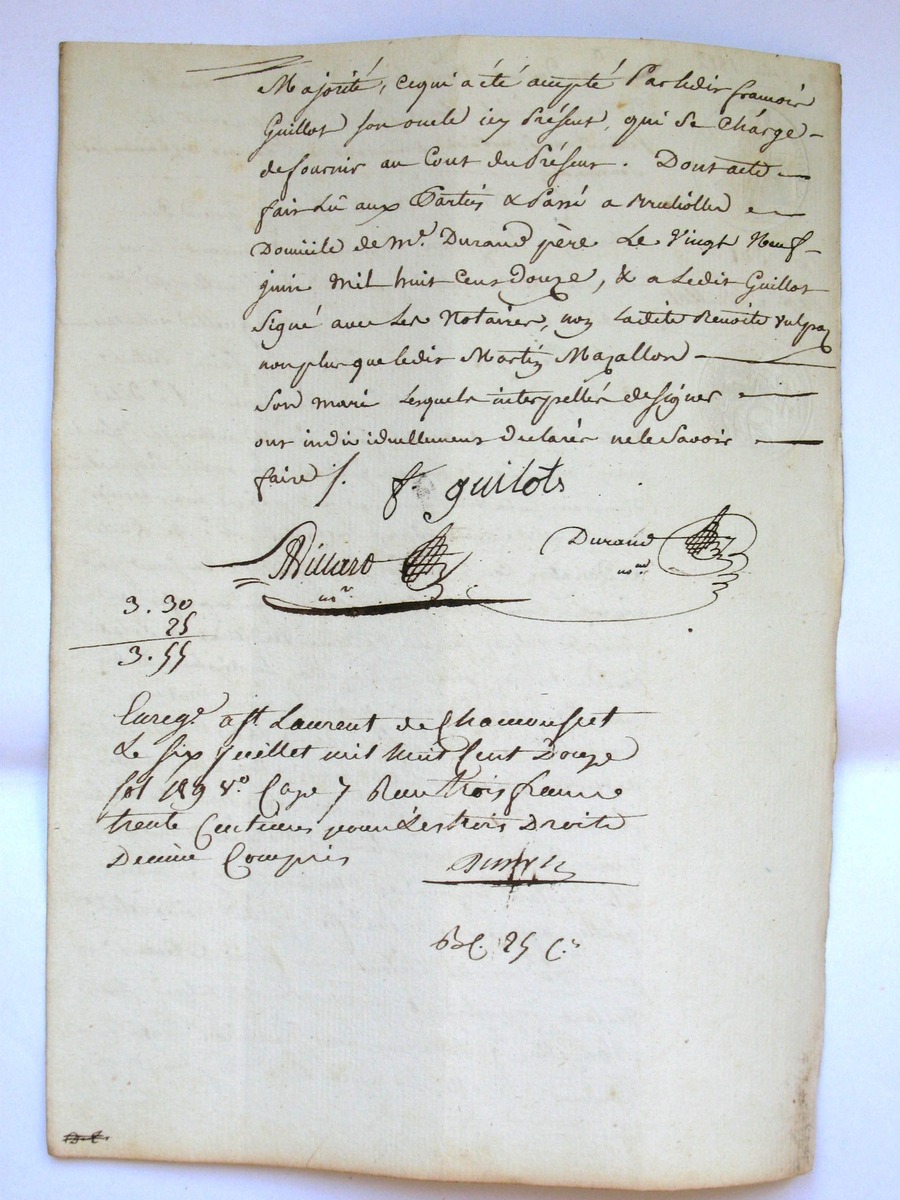 Majorité, cequi a été accepté Par ledit francois
Guillot son oncle icy Présent, qui se Chárge
defournir au Cout du Présent. Dont acte
fait Lû aux Parties & Passé a Brulioller
Domicile de Me. Durand père Le Vingt Neuf
juin Mil huit Cent Douze, & a Ledit Guillot
Signé avec Les Notaires, non Ladite Benoite Vulpaz
non plus que ledit Martin Mazallon
Son mari Lesquels interpellés designer
ont individuellement declarés ne le Savoir
faire /.
f. guilots
Villard
Durand
nore
3. 30
25
3. 55
Enregé. a St. Laurent de Chamousset
Le six Juillet mil huit Cent Douze
fol 189 vo. Case 7 Reçu trois francs
trente Centimes pour Les trois Droits
Decime Compris
25 C.s